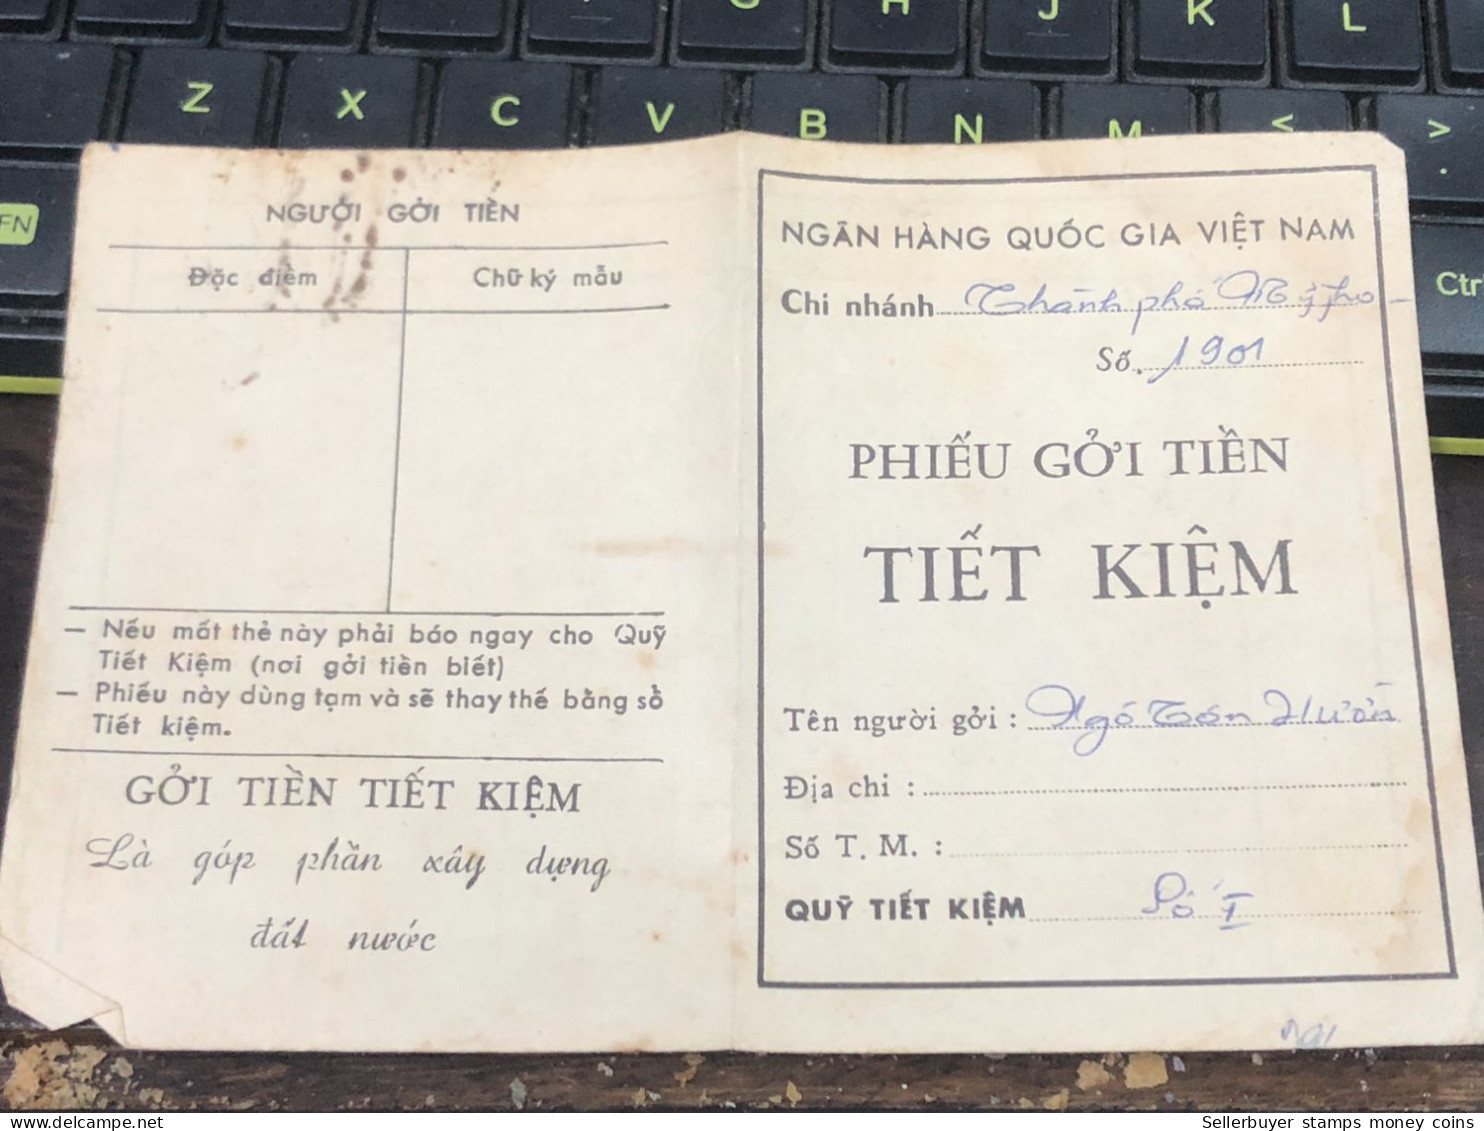 G H J K L
Z X C V B N M < >
FN
Ctr
NGƯỜI GỞI TIỀN
Đặc điểm
Chữ ký mẫu
— Nếu mất thẻ này phải báo ngay cho Quỹ
Tiết Kiệm (nơi gởi tiền biết)
— Phiếu này dùng tạm và sẽ thay thế bằng sổ
Tiết kiệm.
GỞI TIỀN TIẾT KIỆM
Là góp phần xây dựng
đất nước
NGÂN HÀNG QUỐC GIA VIỆT NAM
Chi nhánh Thành phố Mỹ Tho
Số. 1901
PHIẾU GỞI TIỀN
TIẾT KIỆM
Tên người gởi : Ngô Tôn
Địa chỉ :
Số T. M. :
QUỸ TIẾT KIỆM Số I
Sellerbuyer stamps money coins